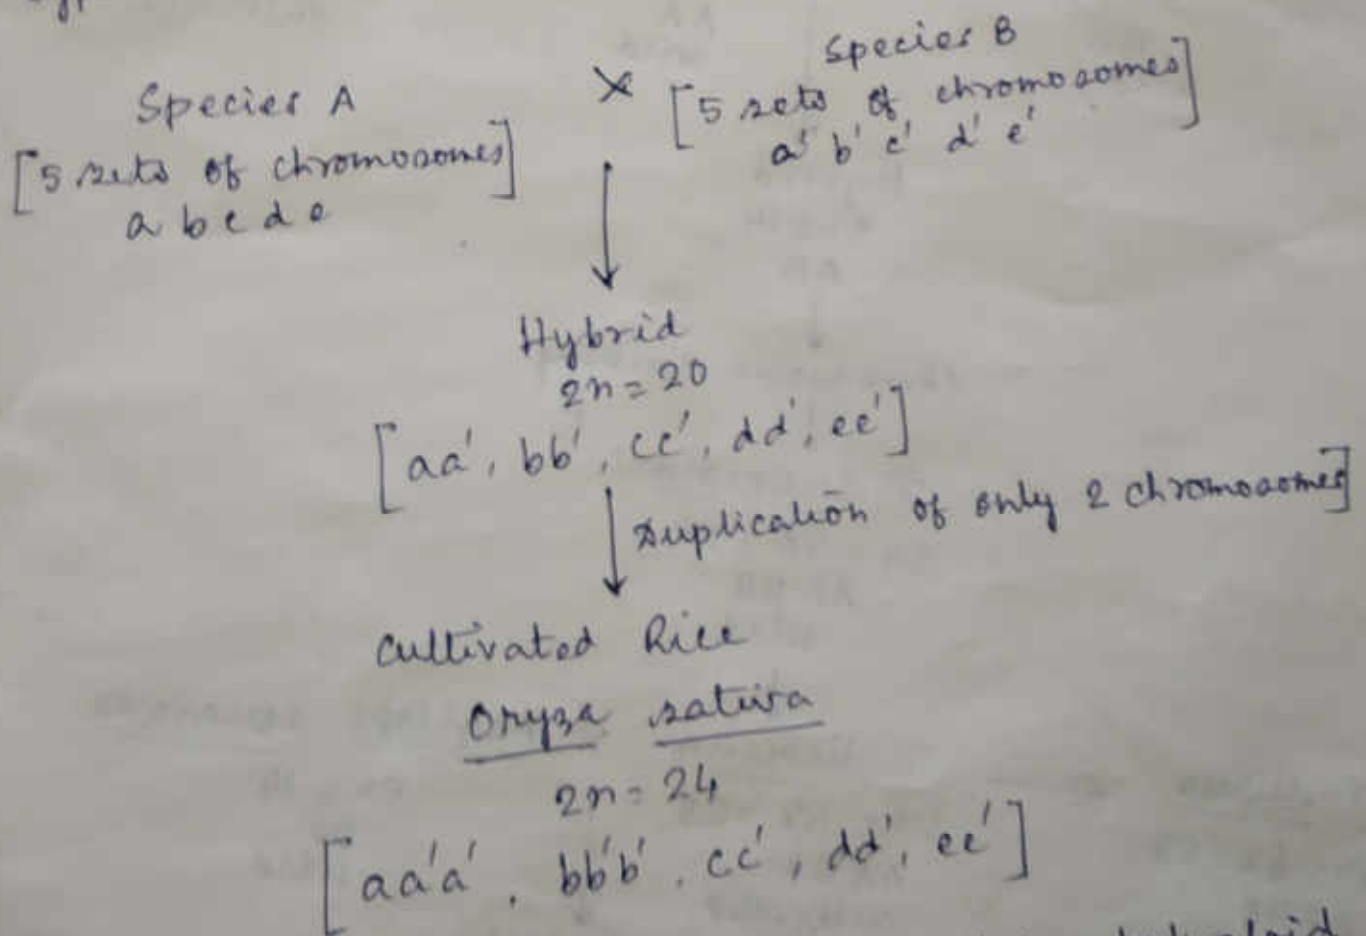 Species A
[5 sets of chromosomes]
a b c d e
×
Species B
[5 sets of chromosomes]
a' b' c' d' e'
Hybrid
2n = 20
[aa', bb', cc', dd', ee']
Duplication of only 2 chromosomes]
Cultivated Rice
Oryza sativa
2n = 24
[aa'a', bb'b', cc', dd', ee']